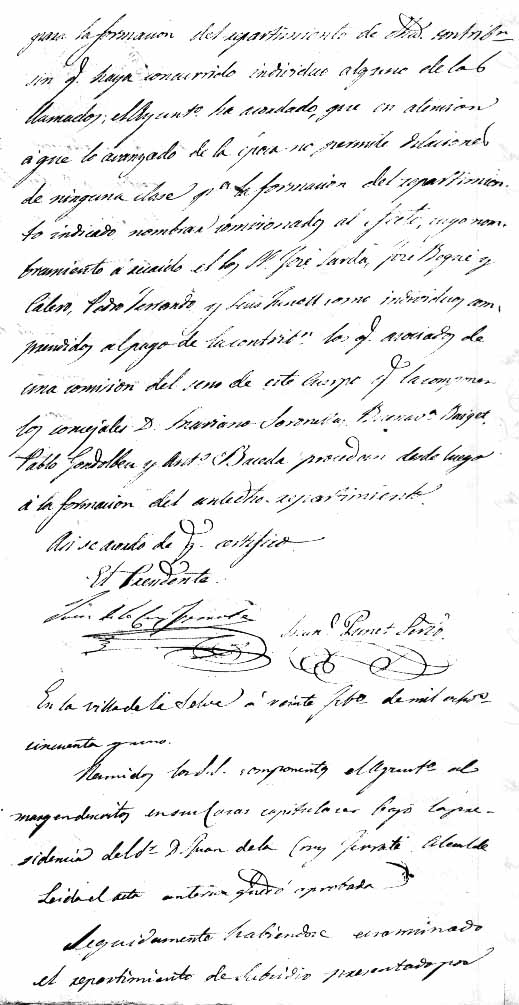 para la formacion del repartimiento de dha. contribu
sin q. haya concurrido individuo alguno de los
llamados; el Ayunto. ha acordado, que en atencion
a que lo avanzado de la epoca no permite dilaciones
de ninguna clase pa. la formacion del repartimien-
to indicado nombrar comisionados al efecto, cuyo nom-
bramiento á recaido en los Srs. José Sardá, José Boqué y
Calero, Pedro Ferrando y como individuos com-
prendidos al pago de la contribn. los q. asociados de
una comision del seno de este Cuerpo q. la componen
los concejales D. Mariano Buenava. Baiget,
Pablo y Anto. procedan desde luego
á la formacion del antedicho repartimiento.
Asi se acordó de q. certifico.
El Presidente
Juan de la Cruz Ferraté
Juan Srio.
En la villa de la Selva á veinte Febo. de mil ochos.
cincuenta y uno.
Reunidos los S.S. componentes el Ayunto. al
margen descritos en sus Casas capitulares bajo la pre-
sidencia del Sr. D. Juan de la Cruz Ferraté Alcalde
Leida el acta anterior quedó aprobada
Seguidamente habiendose examinado
el repartimiento de Subsidio presentado por